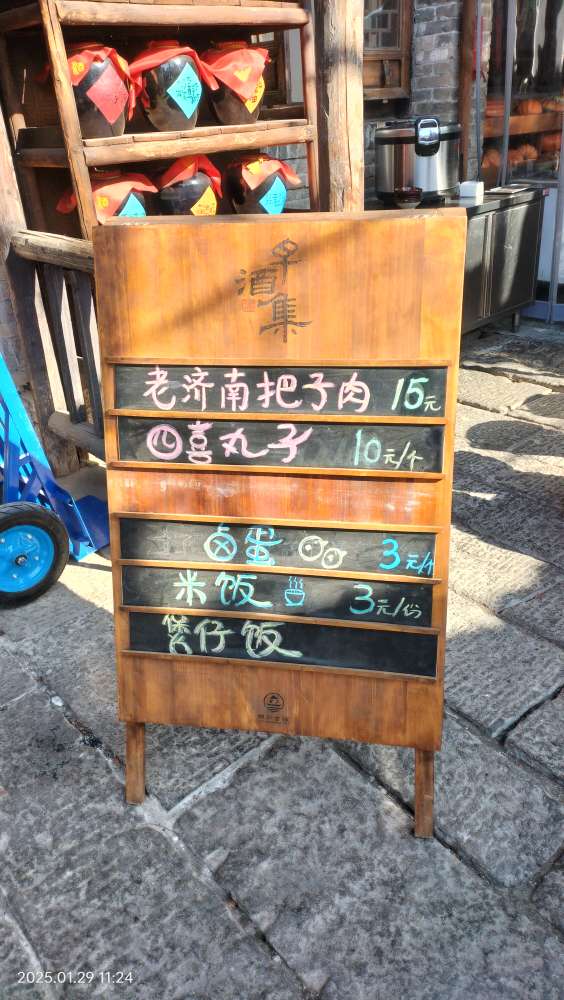 酒集
老济南把子肉 15元
四喜丸子 10元/个
卤蛋 3元/个
米饭 3元/份
煲仔饭
2025.01.29 11:24